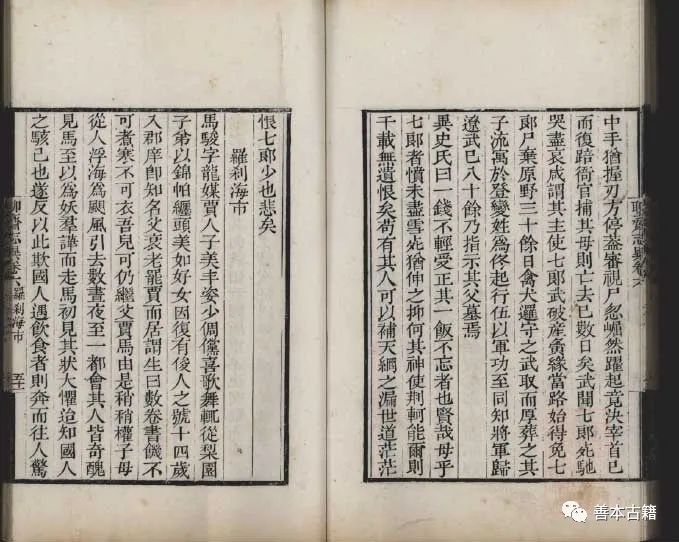 聊齋志異卷六
中手猶握刃方停葢審視尸忽崛然躍起竟決宰首已
而復踣衙官捕其母則亡去已數日矣武聞七郎死馳
哭盡哀咸謂其主使七郎武破産夤緣當路始得免七
郎尸棄原野三十餘日禽犬邏守之武取而厚葬之其
子流寓於登變姓為佟起行伍以軍功至同知將軍歸
遼武已八十餘乃指示其父墓焉
異史氏曰一錢不輕受正其一飯不忘者也賢哉母乎
七郎者憤未盡雪死猶伸之抑何其神使荆軻能爾則
千載無遺恨矣苟有其人可以補天網之漏世道茫茫
恨七郎少也悲矣
羅刹海市
馬駿字龍媒賈人子美丰姿少倜儻喜歌舞輒從梨園
子弟以錦帕纏頭美如好女因復有俊人之號十四歲
入郡庠即知名父衰老罷賈而居謂生曰數卷書饑不
可煮寒不可衣吾兒可仍繼父賈馬由是稍稍權子母
從人浮海為颶風引去數晝夜至一都會其人皆奇醜
見馬至以為妖羣譁而走馬初見其狀大懼迨知國人
之駭己也遂反以此欺國人遇飲食者則奔而往人驚
聊齋志異卷六 羅刹海市
善本古籍